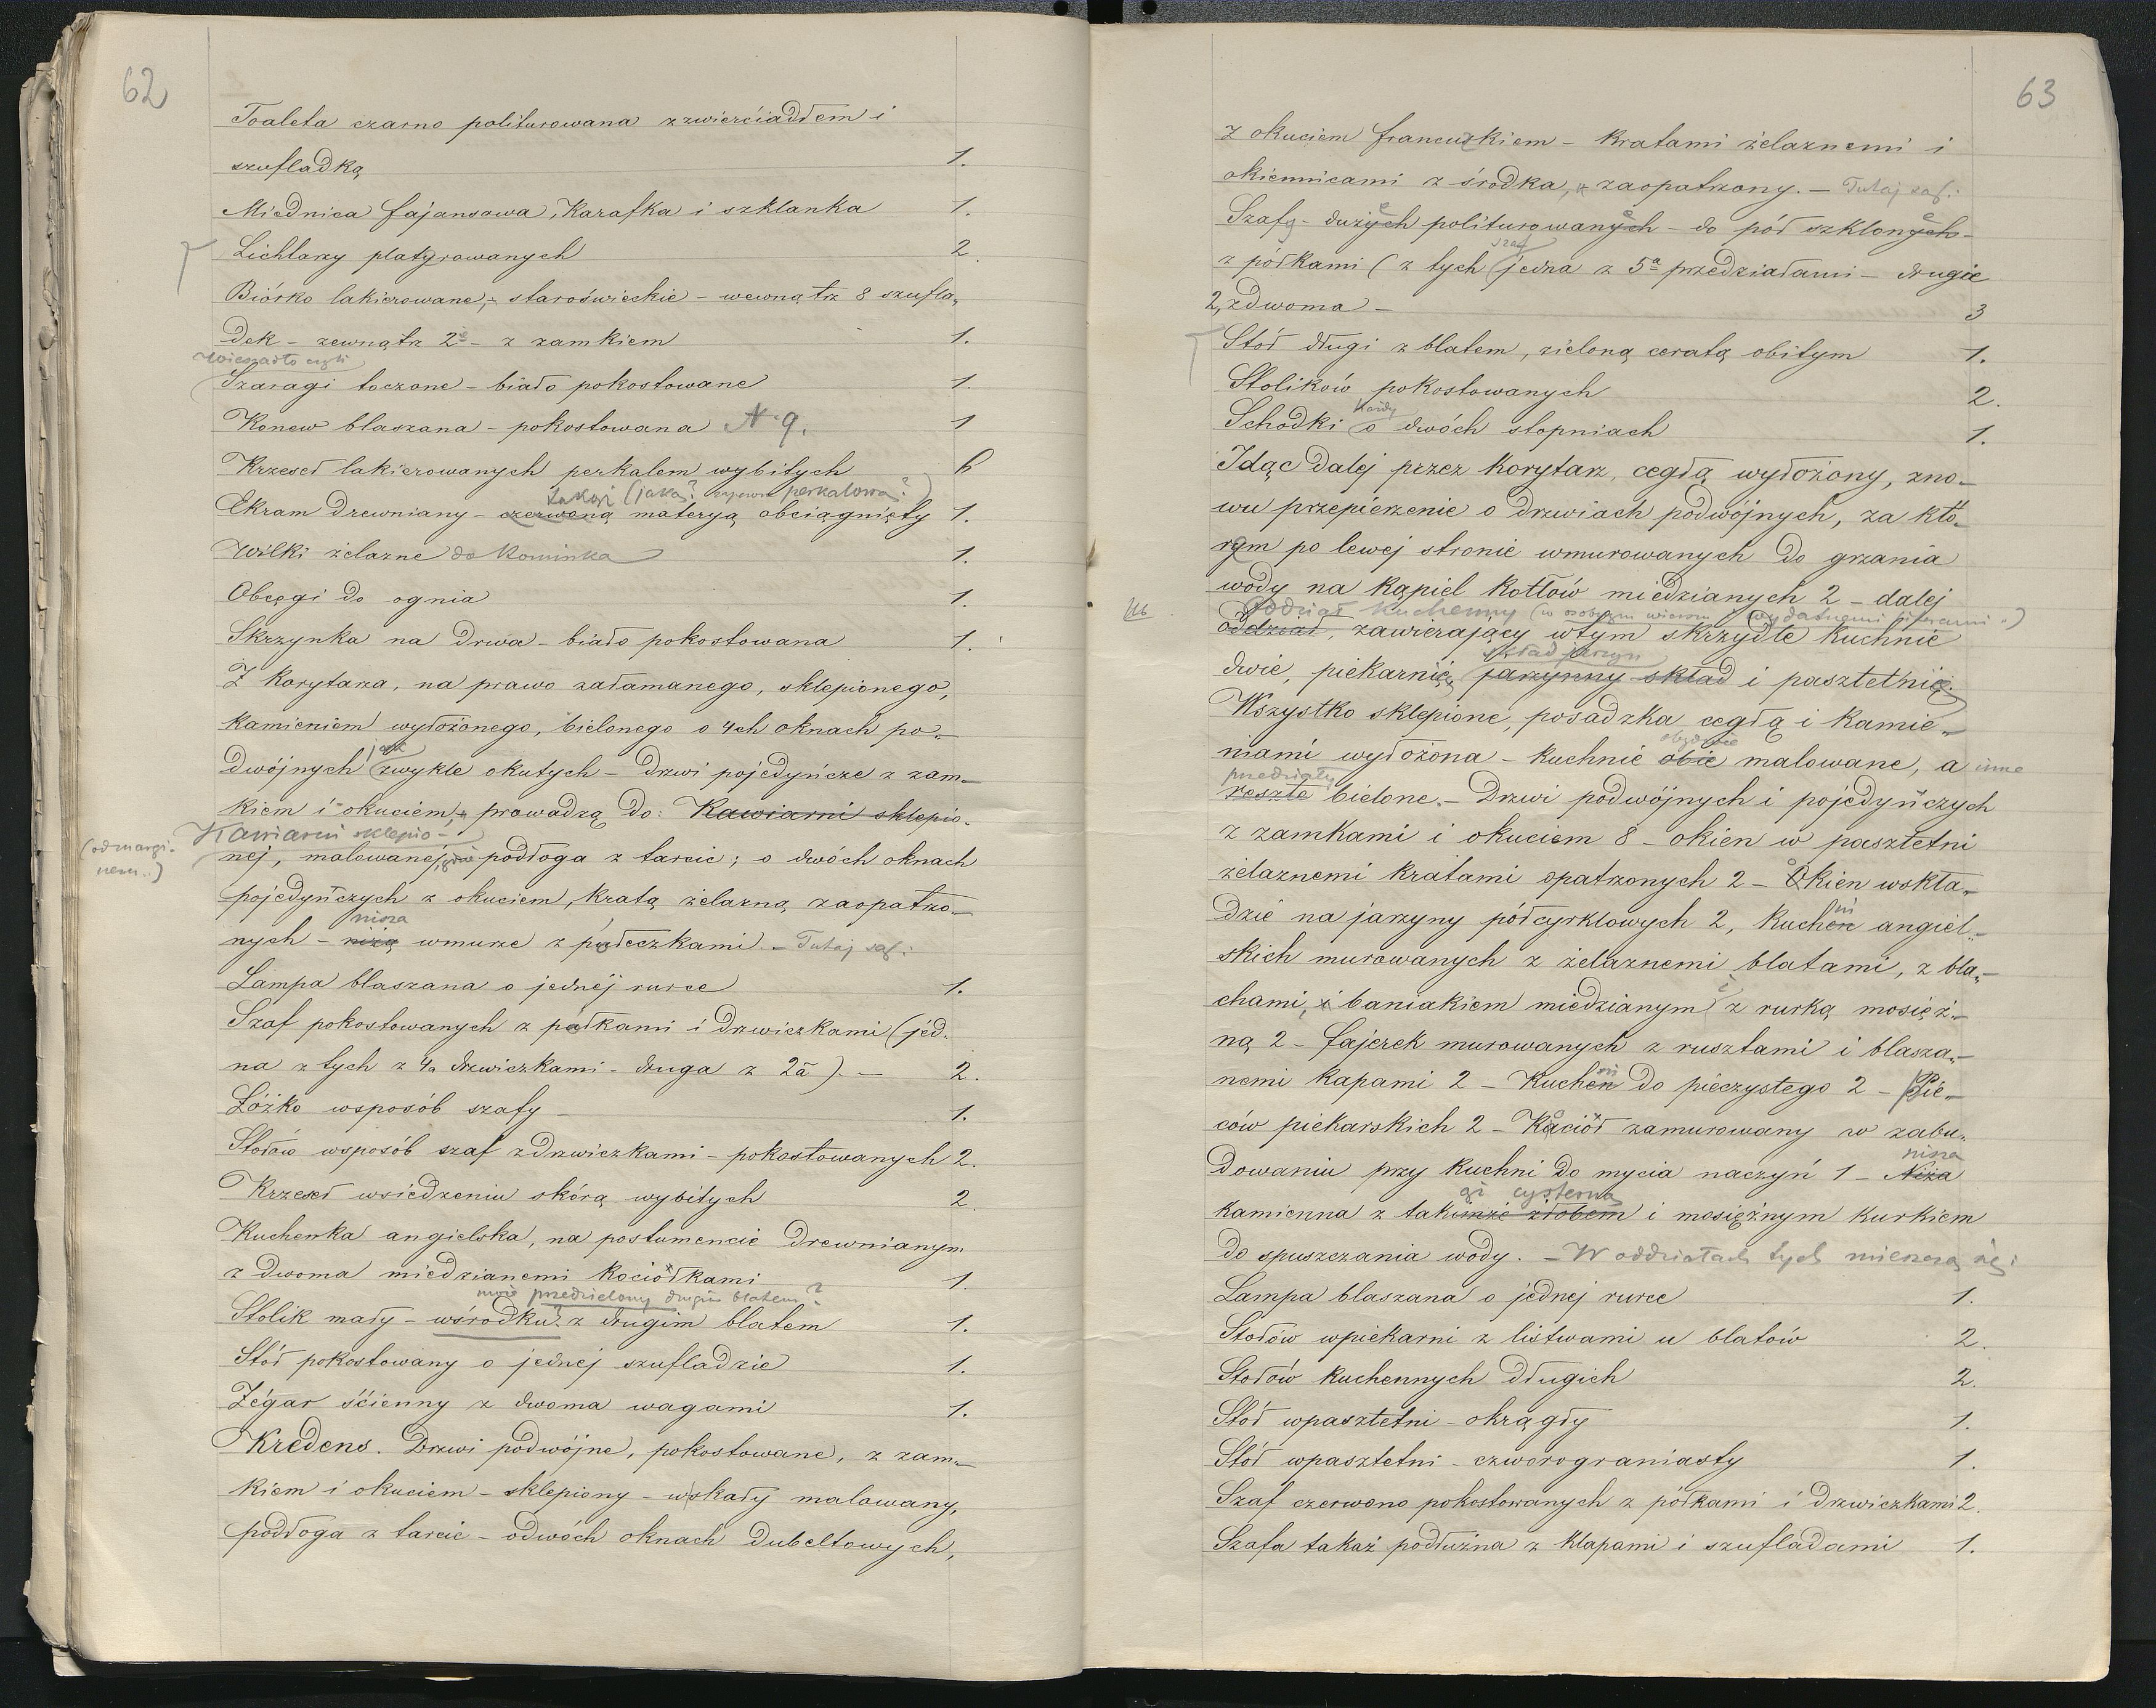 62
Toaleta czarno politurowana z zwierciadłem i
szufladką 1.
Miednica fajansowa, Karafka i szklanka 1.
Lichtarzy platyrowanych 2.
Biórko lakierowane, - staroświeckie - wewnątrz 8 szufla„
dek - zewnątrz 2ie - z zamkiem 1.
Wieszadło czyli
Szaragi toczone - biało pokostowane 1.
Konew blaszana - pokostowana N. 9. 1
Krzeseł lakierowanych perkalem wybitych 6
takąż (jaką? zapewne perkalową?)
Ekram drewniany - czerwoną materyą obciągnięty 1.
Wilki żelazne do Kominka 1.
Obcęgi do ognia 1.
Skrzynka na drwa - biało pokostowana 1.
Z Korytarza, na prawo załamanego, sklepionego,
kamieniem wyłożonego, bielonego o 4ch oknach po„
jak
dwójnych zwykle okutych - Drzwi pojedyńcze z zam„
kiem i okuciem, prowadzą do: Kawiarni sklepio„
Kawiarni sklepio-
(od margi-
nem..)
nej, malowanej, podłoga z tarcic; o dwóch oknach
pojedyńczych z okuciem, kratą żelazną zaopatrzo„
nisza
nych - niżą wmurze z pułeczkami. - Tutaj są:
Lampa blaszana o jednéj rurce 1.
Szaf pokostowanych z półkami i drzwiczkami (jed„
na z tych z 4a drzwiczkami - druga z 2a) - 2.
Łóżko wsposób szafy - 1.
Stołów wsposób szaf zdrzwiczkami - pokostowanych 2.
Krzeseł wsiedzeniu skórą wybitych 2.
Kuchenka angielska, na postumencie drewnianym
z dwoma miedzianemi kociołkami 1.
może przedzielony drugim blatem?
Stolik mały - wśrodku? z drugim blatem 1.
Stół pokostowany o jednej szufladzie 1.
Zégar ścienny z dwoma wagami 1.
Kredens. Drzwi podwójne, pokostowane, z zam„
kiem i okuciem - sklepiony - wskały malowany,
podłoga z tarcic - odwóch oknach dubeltowych,
63
z okuciem francuzkiem - Kratami żelaznemi i
okiennicami z środka, zaopatrzony. - Tutaj są:
Szafy - dużych politurowanych - do pół szklonych -
szaf
z półkami (z tych jedna z 5a przedziałami - drugie
2, zdwoma - 3
Stół długi z blatem, zieloną ceratą obitym 1.
Stolików pokostowanych 2.
każdy
Schodki o dwóch stopniach 1.
Idąc dalej przez Korytarz, cegłą wyłożony, zno„
wu przepierzenie o drzwiach podwójnych, za któ„
rym po lewej stronie wmurowanych do grzania
wody na kąpiel kotłów miedzianych 2 - dalej
Oddział Kuchenny (w osobnym wierszu i wydatnemi literami..)
oddział, zawierający wtym skrzydle kuchnie
skład jarzyn
dwie, piekarnię, jarzynny skład i pasztetnię.
Wszystko sklepione, posadzka cegłą i kamie„
obydwie
niami wyłożona - kuchnie obie malowane, a inne
przedziały
resztę bielone. - Drzwi podwójnych i pojedyńczych
z zamkami i okuciem 8 - okien w pasztetni
żelaznemi kratami opatrzonych 2 - Okien wskła„
dzie na jarzyny półcyrklowych 2, Kuchen angiel„
skich murowanych z żelaznemi blatami, z bla„
chami, i baniakiem miedzianym z rurką mosięż„
ną 2 - fajerek murowanych z rusztami i blasza„
nemi kapami 2 - Kuchen do pieczystego 2 - Pie„
ców piekarskich 2 - Kocioł zamurowany w zabu„
nisza
dowaniu przy kuchni do mycia naczyń 1 - Niża
cysterną
kamienna z takimże żłobem i mosiężnym kurkiem
do spuszczania wody. - W oddziałach tych mieszczą się:
Lampa blaszana o jednej rurce 1.
Stołów wpiekarni z listwami u blatów 2.
Stołów kuchennych długich 2.
Stół wpasztetni - okrągły 1.
Stół wpasztetni - czworograniasty 1.
Szaf czerwono pokostowanych z półkami i drzwiczkami 2.
Szafa takaż podłużna z klapami i szufladami 1.